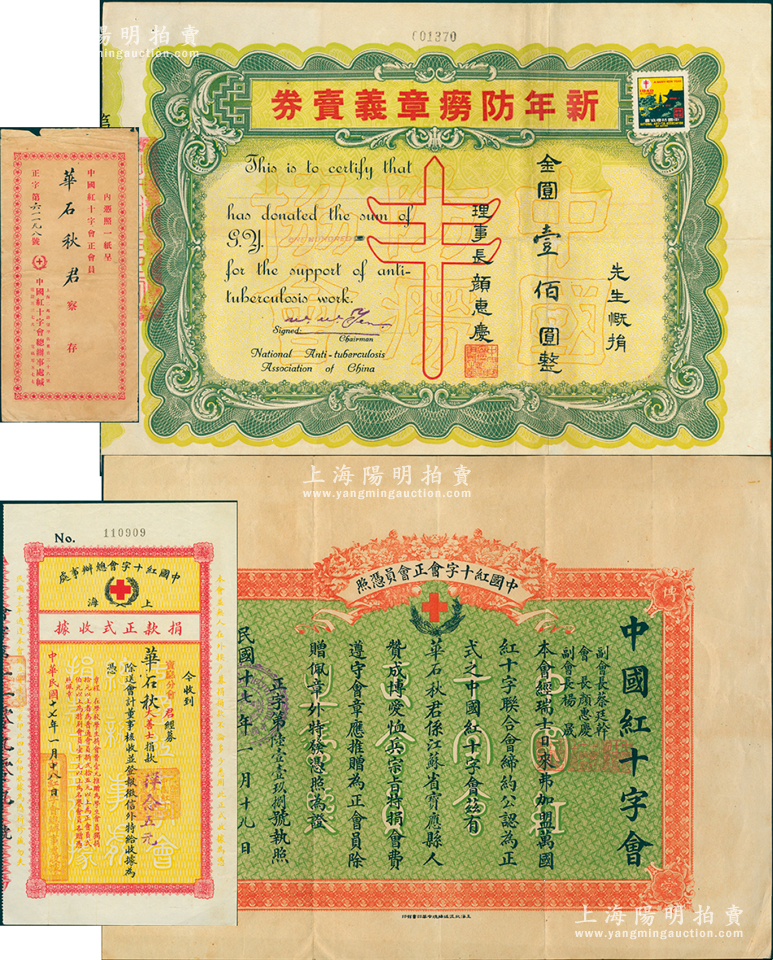 001370
新年防癆章義賣券
先生慨捐
金圓壹佰圓整
理事長顏惠慶
This is to certify that
has donated the sum of
G.Y. ONE HUNDRED
for the support of anti-
tuberculosis work.
Signed:
Chairman
National Anti-tuberculosis
Association of China
中國防癆協會
內憑照一紙呈
中國紅十字會正會員
華石秋君 察存
正字第六一一九八號
中國紅十字會總辦事處緘
上海陽明拍賣
www.yangmingauction.com
No. 110909
中國紅十字會總辦事處
上海
捐款正式收據
今收到
寶應分會 君經募
華石秋大善士捐款 洋念五元
除送會計董事核收並登報徵信外特給收據為
憑
中華民國十七年一月十八日
中國紅十字會正會員憑照
中國紅十字會
副會長蔡廷幹
會長顏惠慶
副會長楊晟
本會經瑞士日來弗加盟萬國
紅十字聯合會締約公認為正
式之中國紅十字會茲有
華石秋君係江蘇省寶應縣人
贊成博愛恤兵宗旨特捐會費
遵守會章應推贈為正會員除
贈佩章外特稜憑照為證
正字第陸壹壹玖捌號執照
民國十七年一月十九日
博
上海陽明拍賣
www.yangmingauction.com